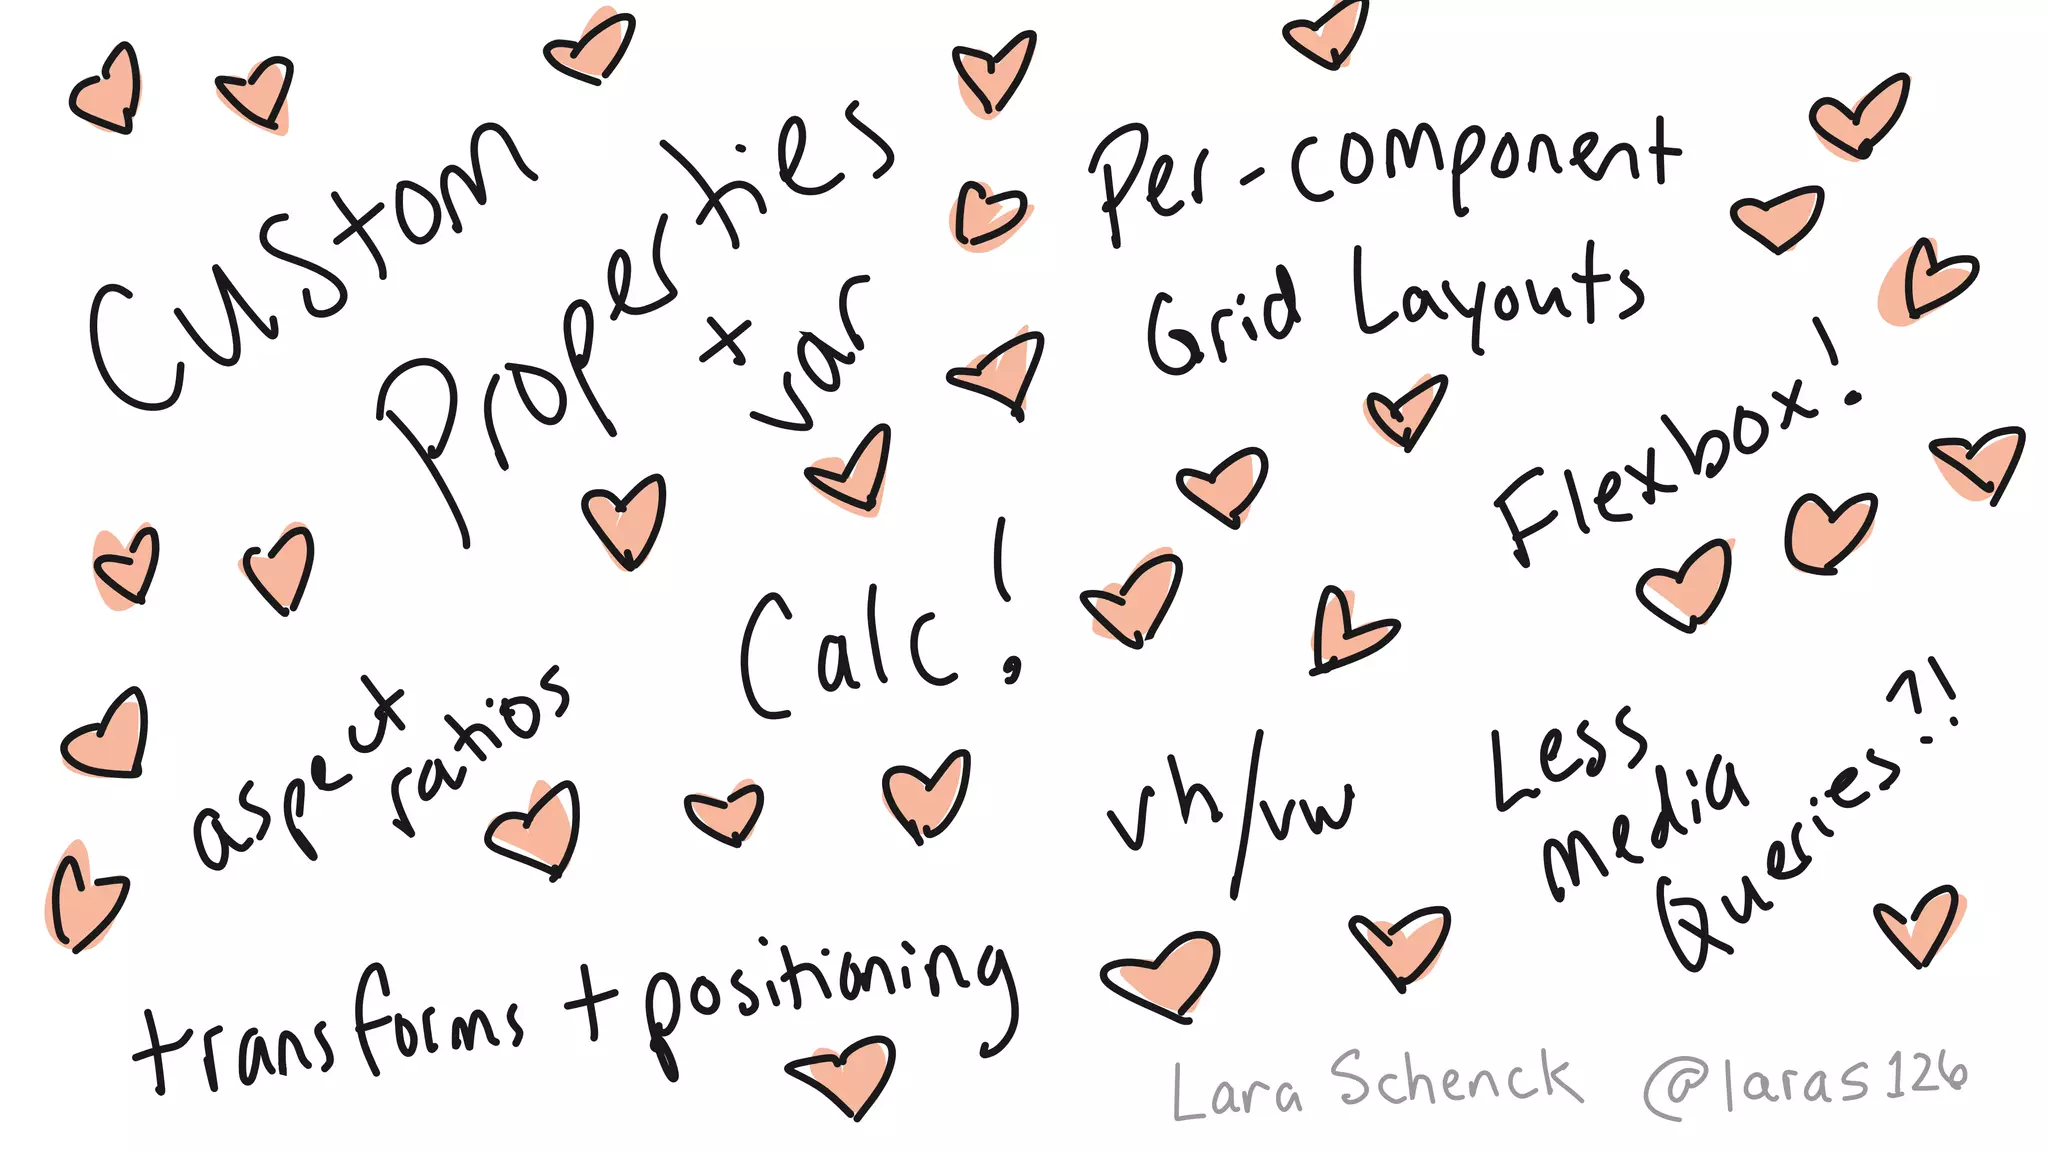 Custom
Properties
+
var
Per-component
Grid Layouts
Flexbox!
Calc!
aspect
ratios
vh/vw
Less
media
Queries?!
transforms + positioning
Lara Schenck @laras126